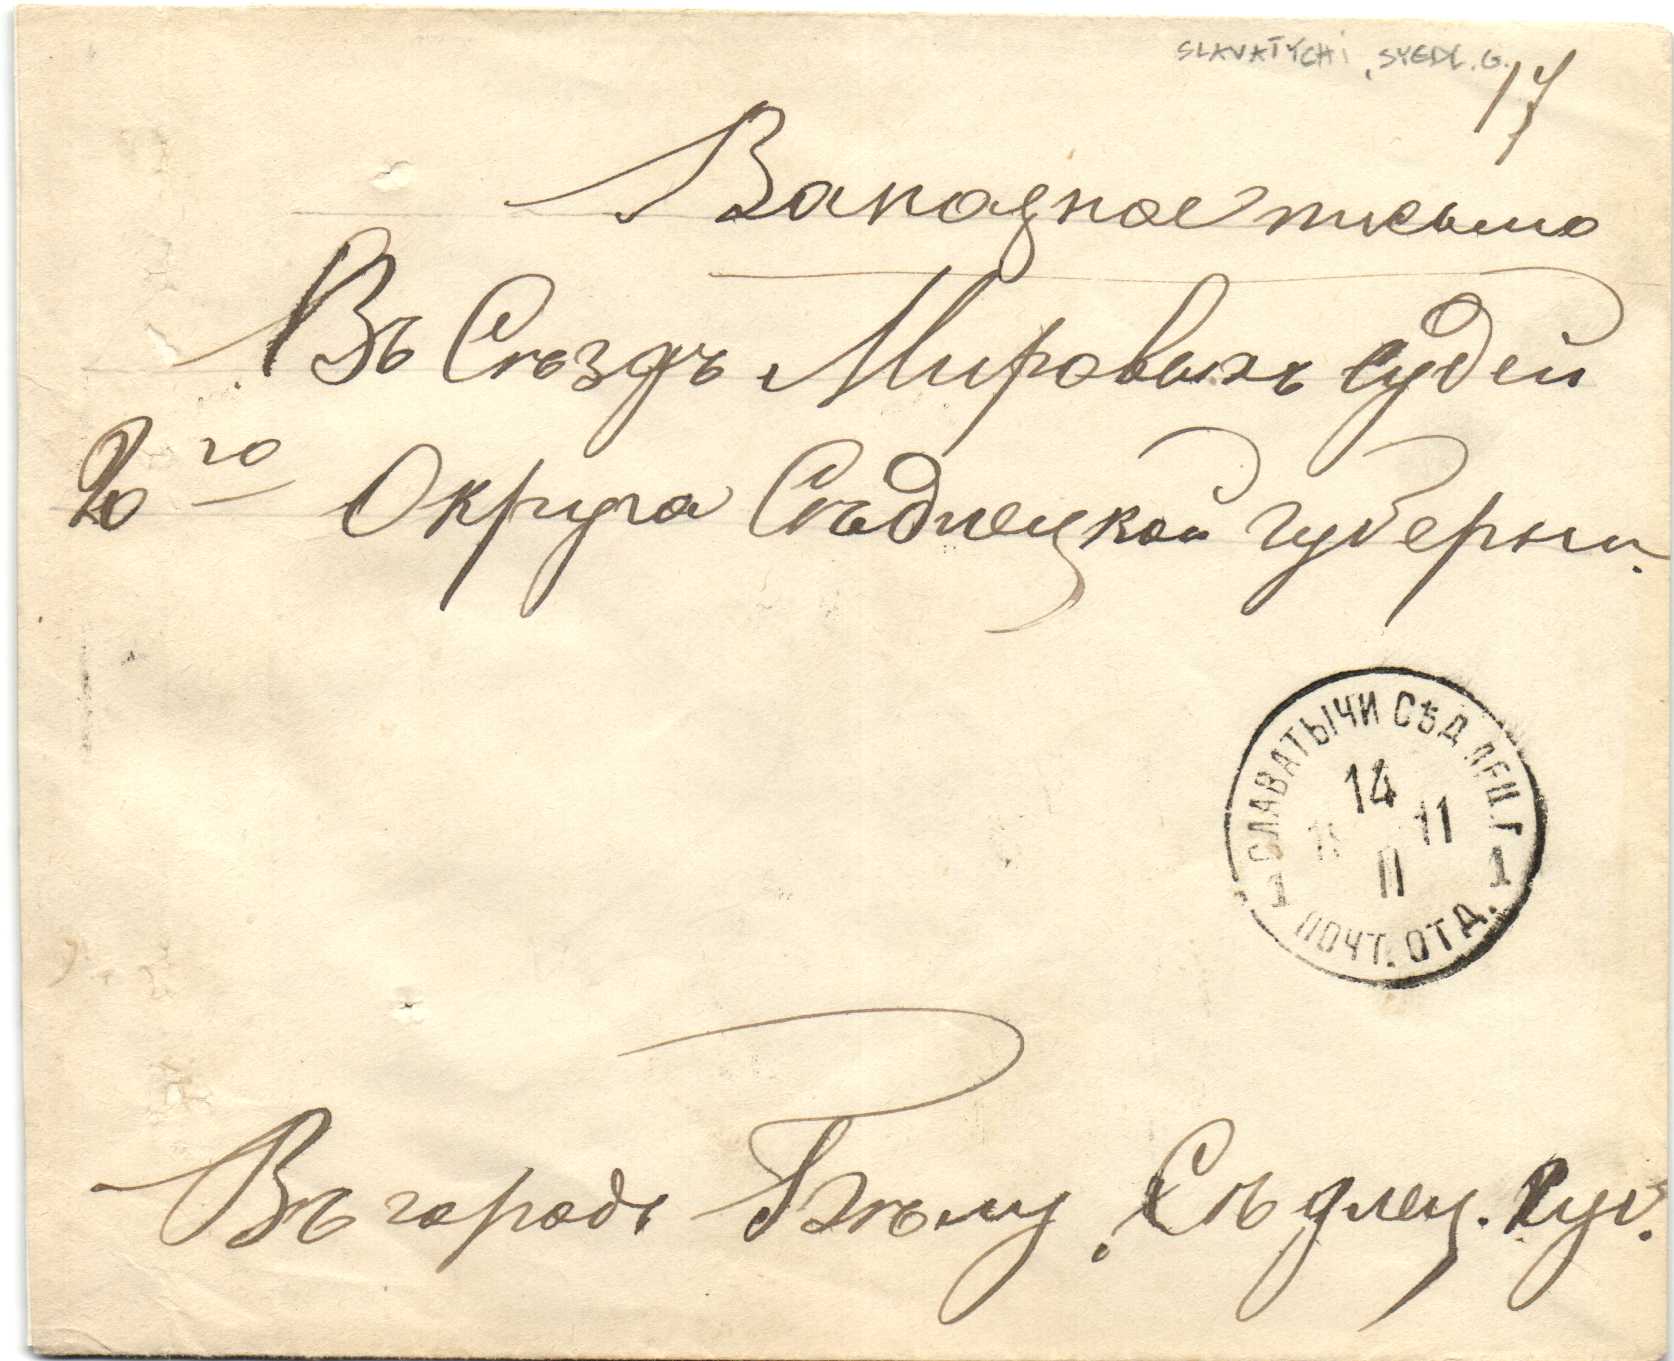 SLAVATYCHI, SYEDL. G.
17
Заказное письмо
Въ Съѣздъ Мировыхъ Судей
2го Округа Сѣдлецкой губерніи.
СЛАВАТЫЧИ СѢДЛЕЦ. Г.
14
11
11
1 1
ПОЧТ. ОТД.
Въ городъ Бѣлу, Сѣдлец. Губ.